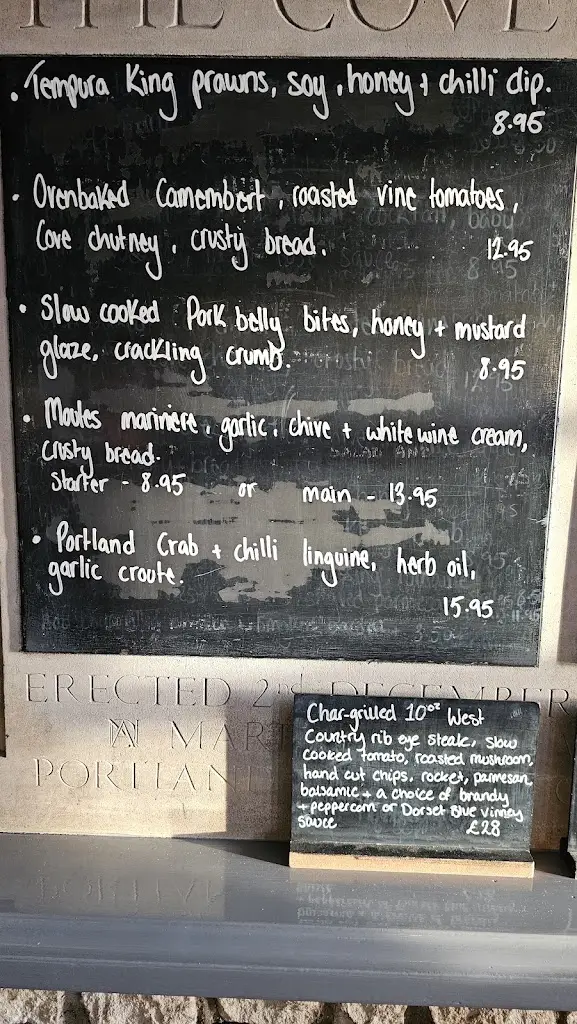 THE COVE
• Tempura King prawns, soy, honey + chilli dip.
8.95
• Ovenbaked Camembert, roasted vine tomatoes,
Cove chutney, crusty bread.
12.95
• Slow cooked Pork belly bites, honey + mustard
glaze, crackling crumb.
8.95
• Moules mariniere, garlic, chive + white wine cream,
crusty bread.
Starter - 8.95 or main - 13.95
• Portland Crab + chilli linguine, herb oil,
garlic croute.
15.95
ERECTED 2nd DECEMBER
PORTLAN
Char-grilled 10oz West
Country rib eye steak, slow
cooked tomato, roasted mushroom,
hand cut chips, rocket, parmesan,
balsamic + a choice of brandy
+ peppercorn or Dorset Blue vinney
sauce £28